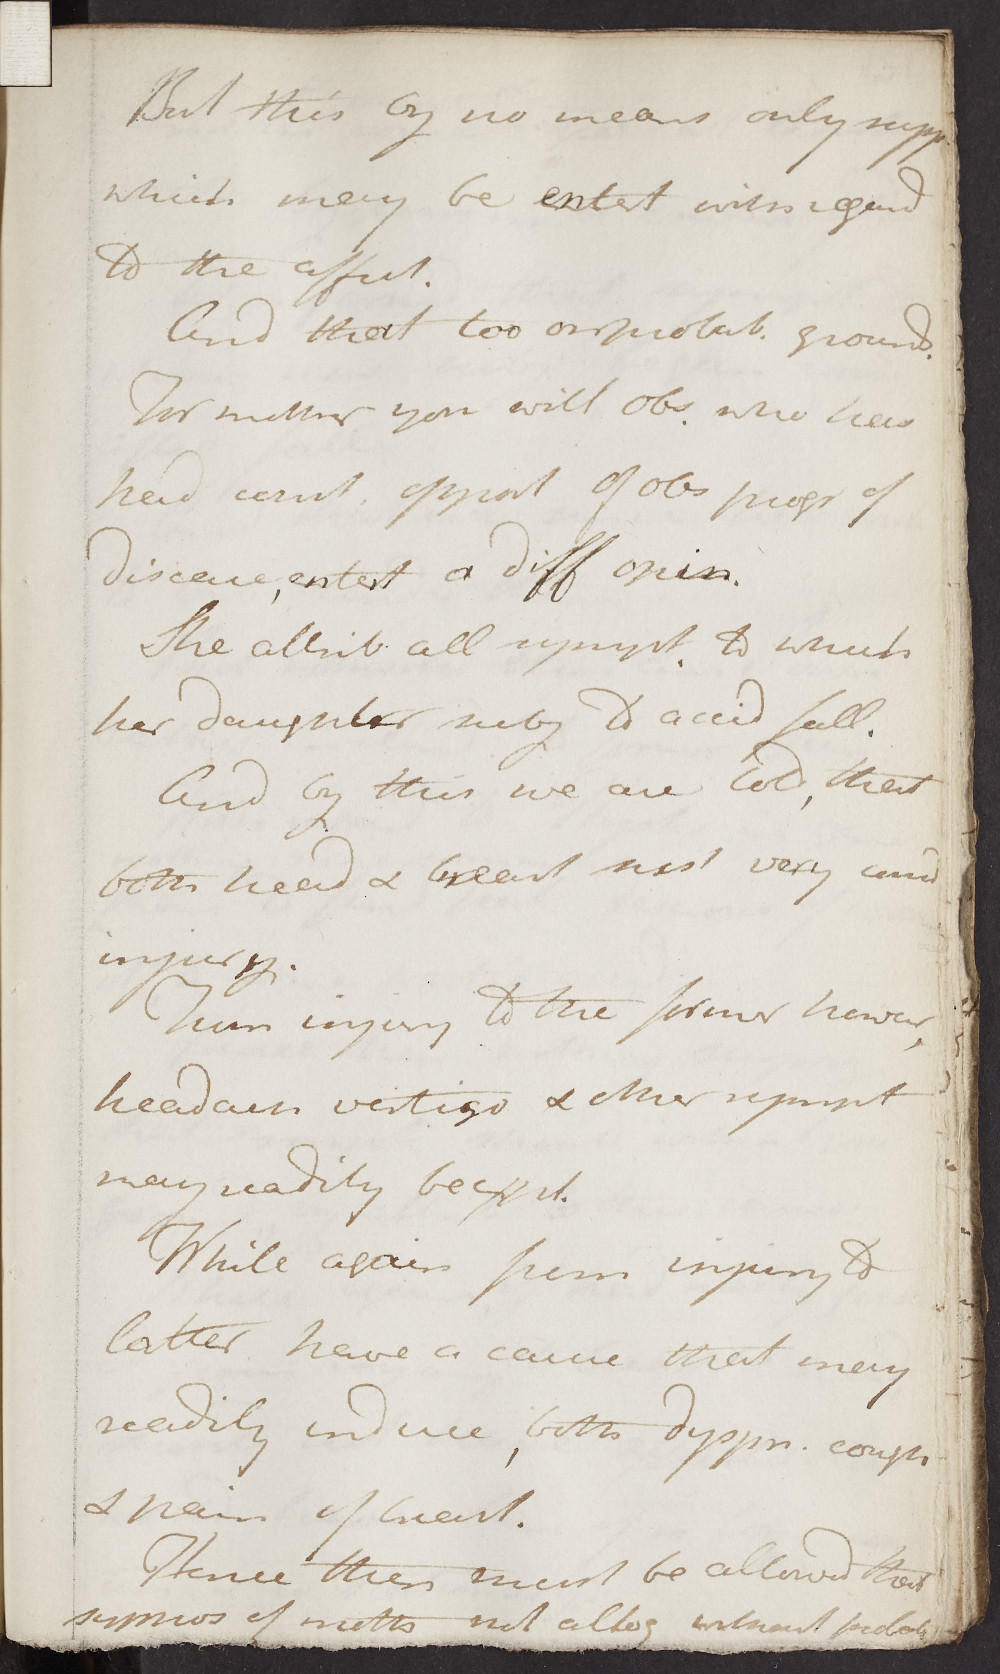 But this by no means only supp
which may be entert with regard
to the affect.
And that too on probab. grounds.
For mother you will obs. who has
had const. opport of obs progr of
disease, entert a diff opin.
She attrib. all sympt. to which
her daughter subj to accid fall.
And by this we are told, that
both head & breast sust very cons
injury.
From injury to the former howevr,
headach vertigo & other sympt
may readily be expt.
While again from injury to
latter have a cause that may
readily induce, both dyspn. cough
& pain of breast.
Hence then must be allowed that
suppos of moth not altog without probab